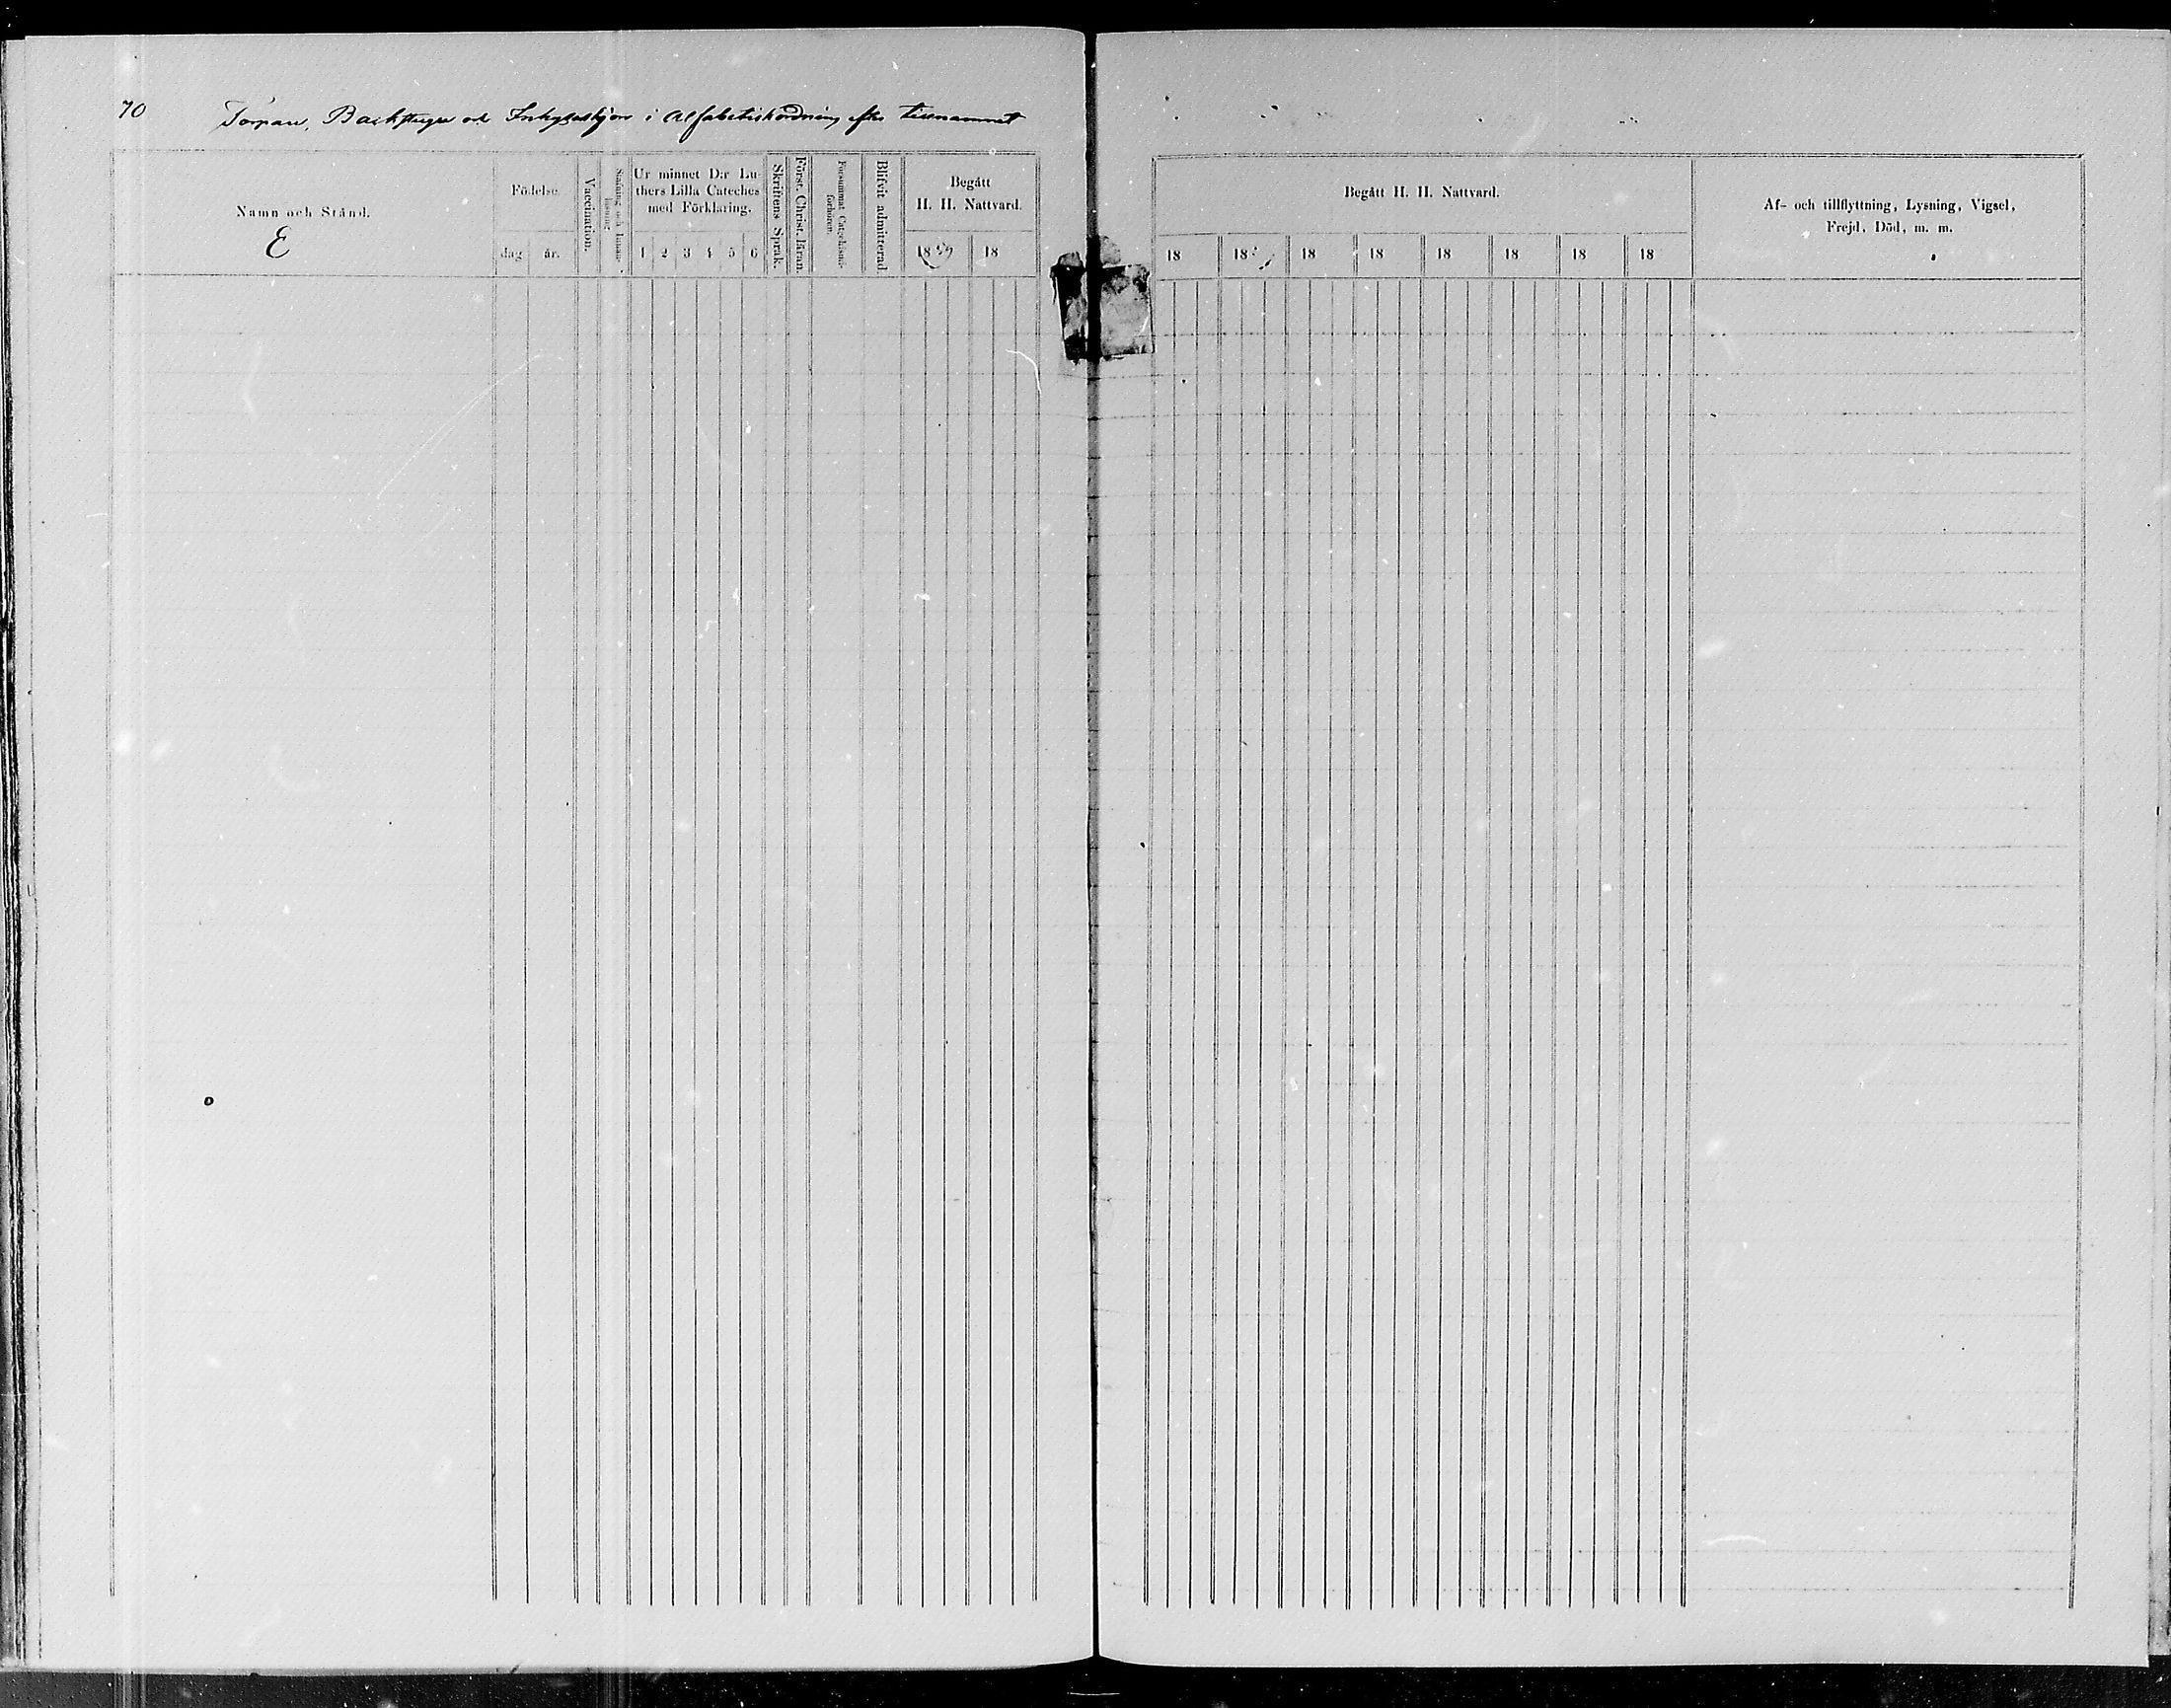 70 Torpare, Backstugu och Inhyseshjon i Alfabetiskordning efter tillnamnet
Namn och Stånd.
E
Födelse.
dag år.
Vaccination.
Stafning och Innanläsning.
Ur minnet D:r Lu-
thers Lilla Cateches
med Förklaring.
1 2 3 4 5 6
Skriftens Språk.
Först. Christ. läran.
Försummat Catechismi-
förhören.
Blifvit admitterad
Begått
H. H. Nattvard.
1859 18
Begått H. H. Nattvard.
18 18 18 18 18 18 18 18
Af- och tillflyttning, Lysning, Vigsel,
Frejd, Död, m. m.